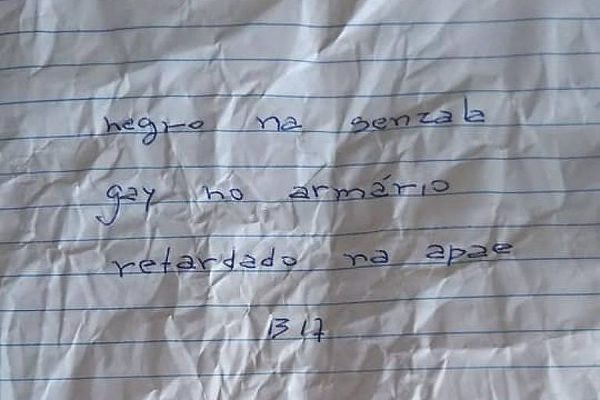 negro na senzala
gay no armário
retardado na apae
B 17